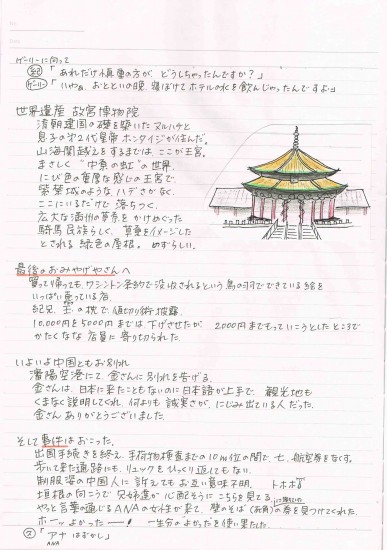 ゲーリーに向って
「あれだけ慎重の方が、どうしちゃったんですか?」
「いやぁ、おとといの晩、寝ぼけてホテルの水を飲んじゃったんですよ」
世界遺産 故宮博物院
清朝建国の礎を築いた ヌルハチと
息子の第2代皇帝 ホンタイジが住んだ。
山海関越えをするまでは、ここが王宮。
まさしく "中原の虹" の世界。
にび色の重厚な感じの王宮で、
紫禁城のような ハデさがなく、
ここにいるだけで 落ちつく。
広大な満州の草原を かけめぐった
騎馬民族らしく、草原をイメージした
とされる 緑色の屋根。めずらしい。
最後のおみやげやさんへ
買って帰っても、ワシントン条約で没収されるという鳥の羽でできている絵を
いっぱい売っている店。
紀兄 玉の枕で、値切り術披露。
10,000円を5000円までは、下げさせたが、2000円までもっていこうとしたところで
かたくなな店員に 寄り切られた。
いよいよ中国ともお別れ
瀋陽空港にて、金さんに別れを告げる。
金さんは、日本に来たこともないのに日本語が上手で、観光地も
くまなく説明してくれ、何よりも誠実さが、にじみ出ている人だった。
金さんありがとうございました。
そして事件はおこった。
出国手続きを終え、手荷物検査までの10m位の間で、七、航空券をなくす。
歩いて来た通路にも、リュックをひっくり返してもない。
制服姿の中国人に 訴えてもお互い意味不明。トホホ
垣根の向こうで 兄姉達が 心配そうに こちらを見てる。
やっと言葉の通じるANAの女性が来て、壁のそば(お角)の券を見つけてくれた。
ホーッ よかったー 一生分のよかったを使い果たした。
「アナ はずかし」
ANA